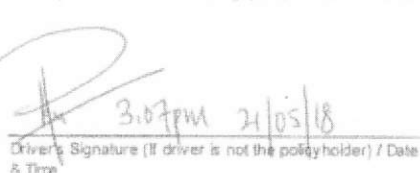 3.07pm 21/05/18
Driver's Signature (If driver is not the policyholder) / Date
& Time